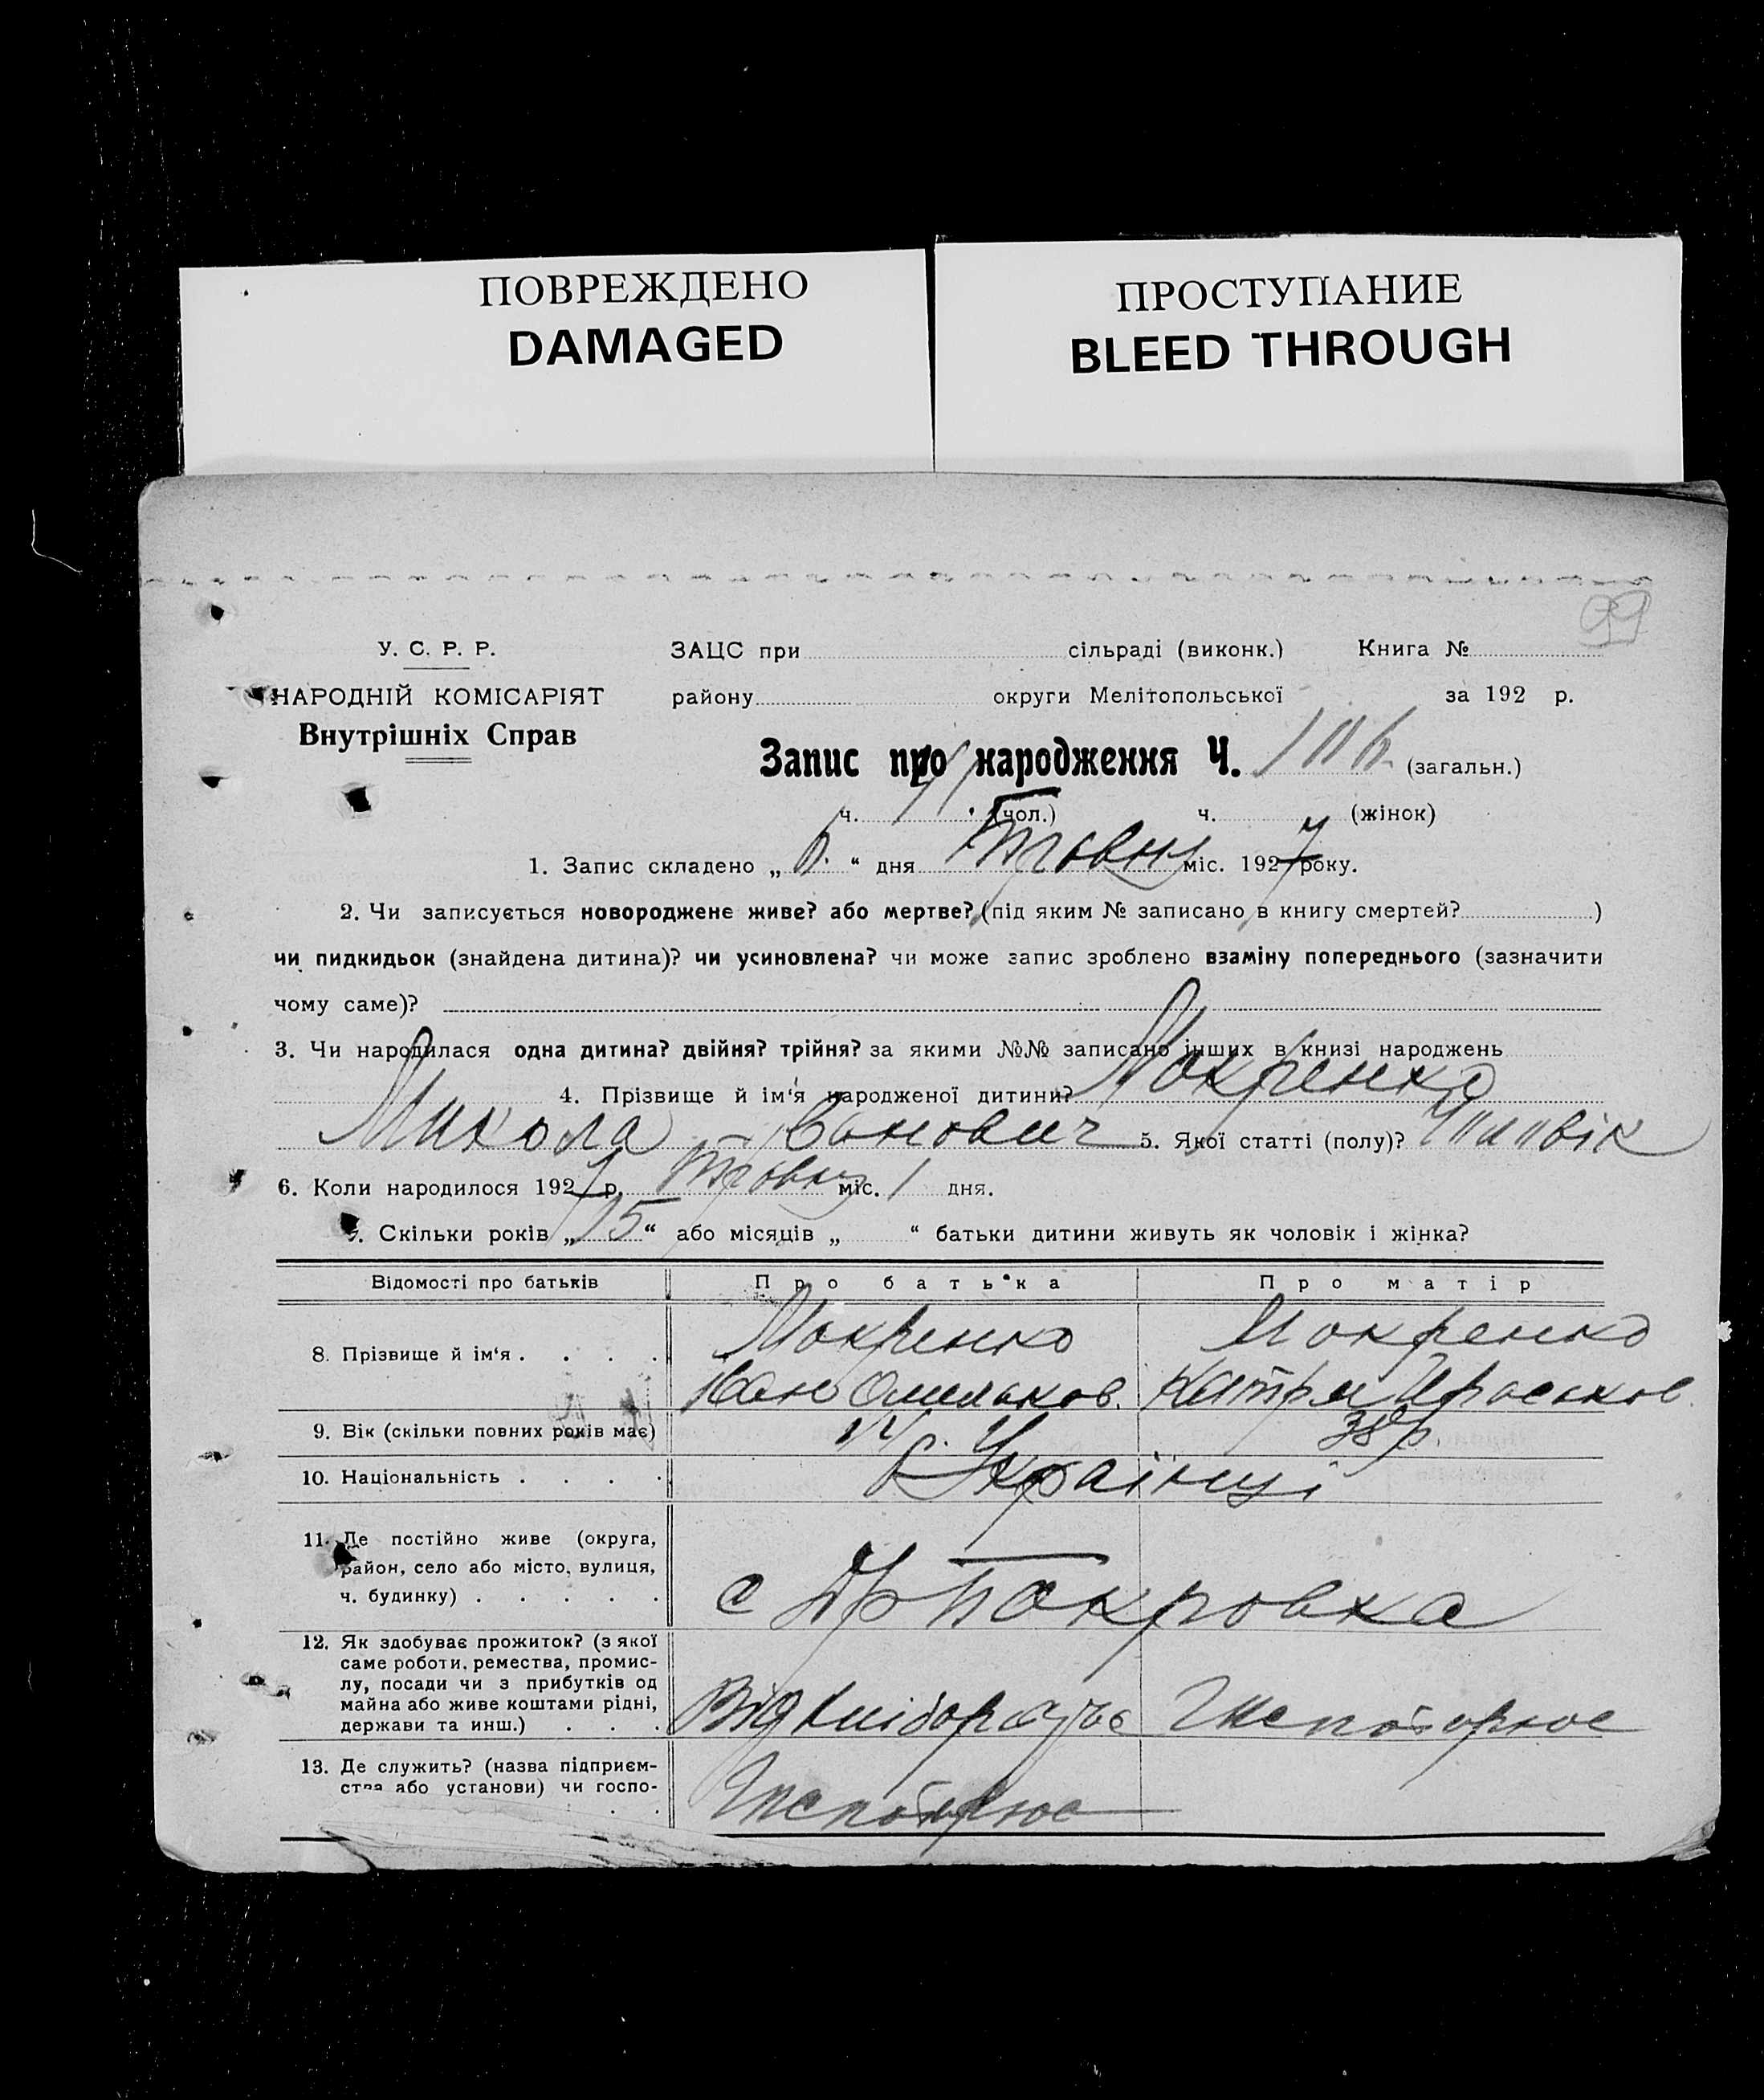 ПОВРЕЖДЕНО
DAMAGED
ПРОСТУПАНИЕ
BLEED THROUGH
99
У. С. Р. Р.
НАРОДНІЙ КОМІСАРІЯТ
Внутрішніх Справ
ЗАЦС при сільраді (виконк.) Книга №
району округи Мелітопольської за 192 р.
Запис про народження Ч. (загальн.)
ч. (чол.) ч. (жінок)
1. Запис складено „ 6. “ дня Травня міс. 1927 року.
2. Чи записується новороджене живе? або мертве? (під яким № записано в книгу смертей? )
чи пидкидьок (знайдена дитина)? чи усиновлена? чи може запис зроблено взаміну попереднього (зазначити
чому саме)?
3. Чи народилася одна дитина? двійня? трійня? за якими №№ записано інших в книзі народжень
4. Прізвище й ім‘я народженої дитини? Мокренко
Микола Іванович 5. Якої статті (полу)? Чоловік
6. Коли народилося 1927 р. Травня міс. 1 дня.
7. Скільки років „ 15 “ або місяців „ “ батьки дитини живуть як чоловік і жінка?
Відомості про батьків
Про батька
Про матір
8. Прізвище й ім‘я . . . .
Мокренко
Іван Омельков.
Мокренко
Катря
9. Вік (скільки повних років має)
38 р.
10. Національність . . . .
Українці
11. Де постійно живе (округа,
район, село або місто, вулиця,
ч. будинку) . . . . .
с Покровка
12. Як здобуває прожиток? (з якої
саме роботи, ремества, промис-
лу, посади чи з прибутків од
майна або живе коштами рідні,
держави та инш.) . . .
Від хліборобства
13. Де служить? (назва підприєм-
ства або установи) чи госпо-